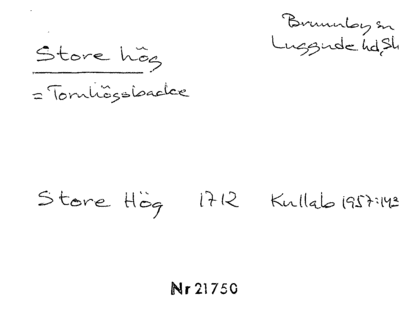 Brunnby sn
Luggude hd, Sk
Store hög
= Tornhögsbacke
Store Hög 1712 Kullab 1957:143
Nr 21750